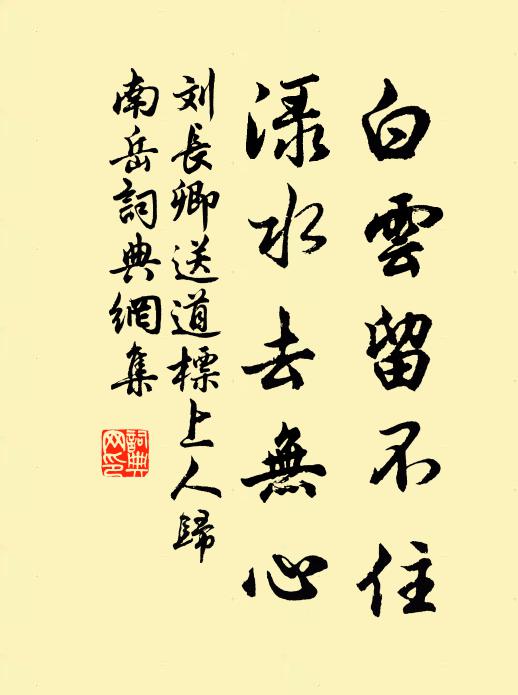 白雲留不住
渌水去無心
刘長卿送道標上人歸
南岳詞典網集
詞典
网印